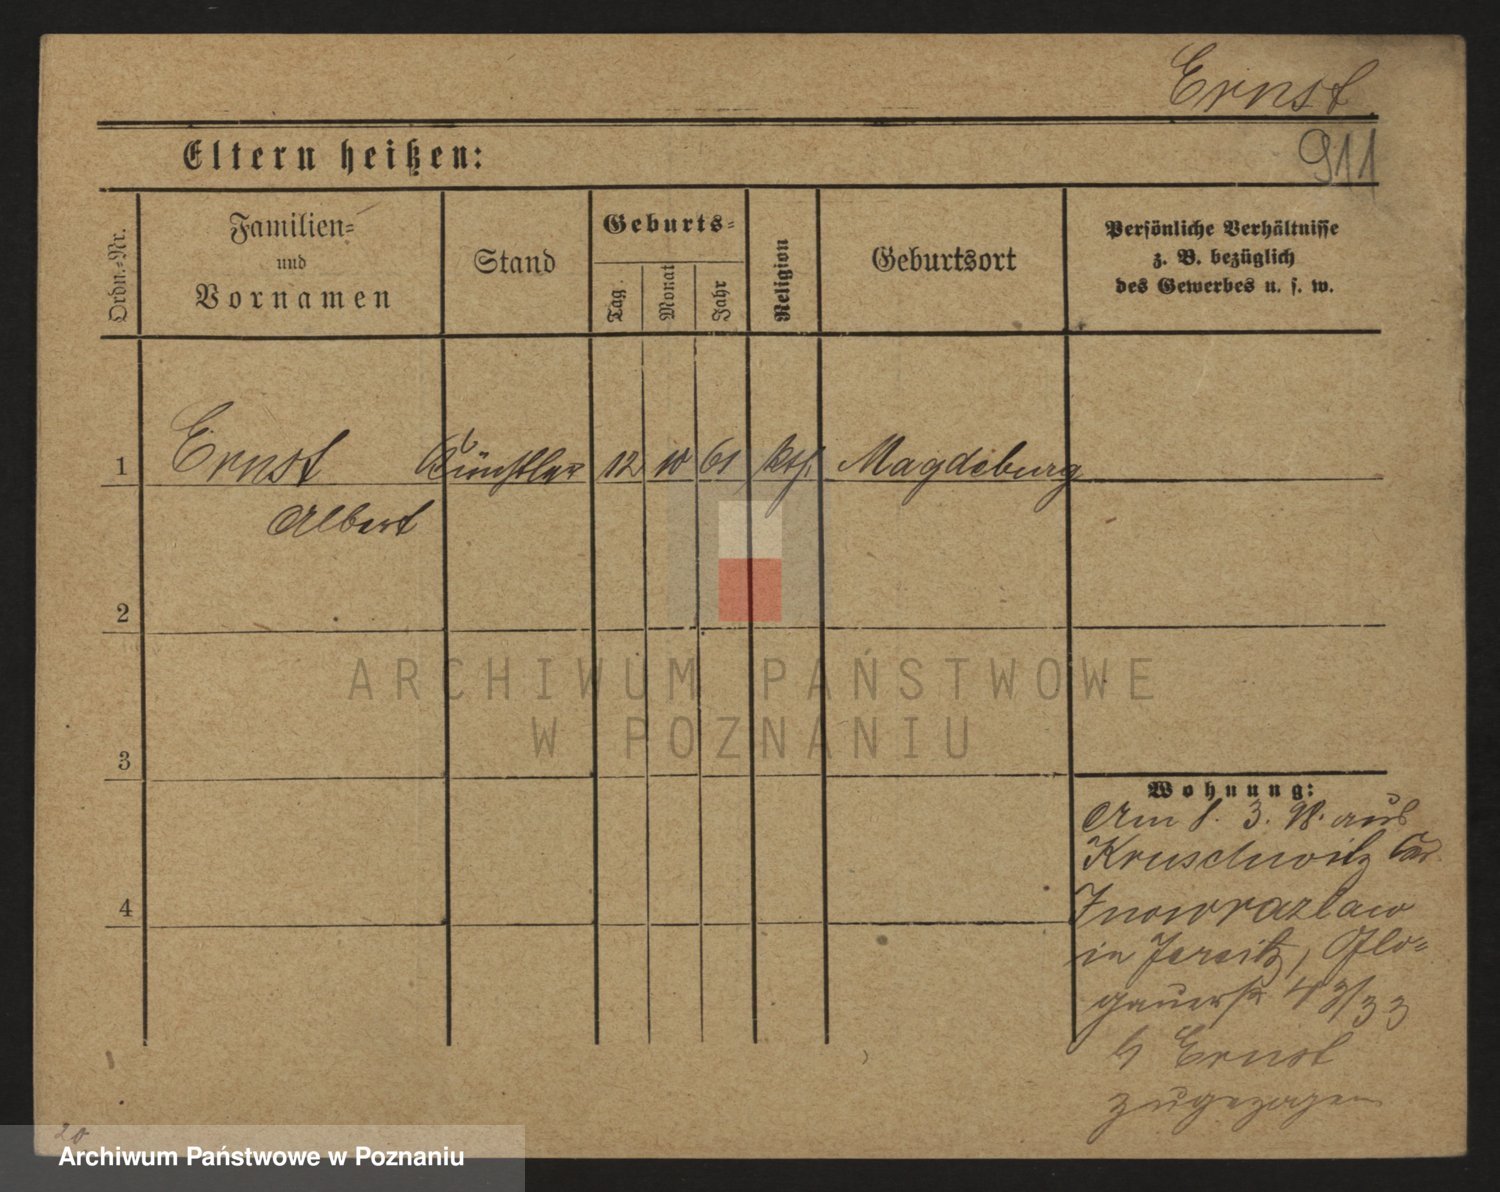 Ernst
911
Eltern heißen:
Ordn.-Nr.
Familien-
und
Vornamen
Stand
Geburts-
Tag.
Monat
Jahr
Religion
Geburtsort
Persönliche Verhältnisse
z. B. bezüglich
des Gewerbes u. s. w.
1 Ernst Künstler 12 10 61 kth. Magdeburg
Albert
2
3
4
Wohnung:
Am 1. 3. 98. aus
Kruschwitz
Inowrazlaw
in Jersitz, Glo-
gauerstr
b Ernst
zugezogen
20
ARCHIWUM PAŃSTWOWE
W POZNANIU
Archiwum Państwowe w Poznaniu